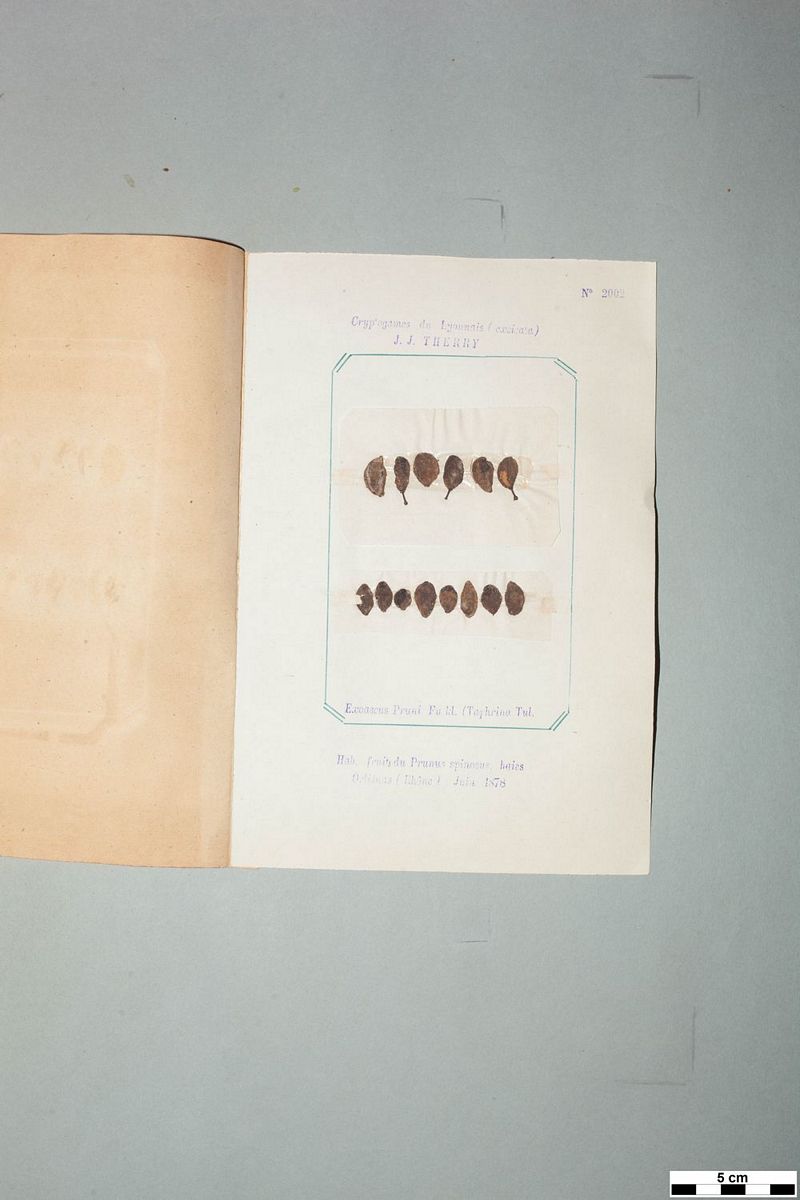 N° 2002
Cryptogames du Lyonnais (exsicata)
J. J. THERRY
Exoascus Pruni Fukl. (Taphrina Tul.
Hab. fruit du Prunus spinosus, haies
(Rhône) Juin 1878
5 cm